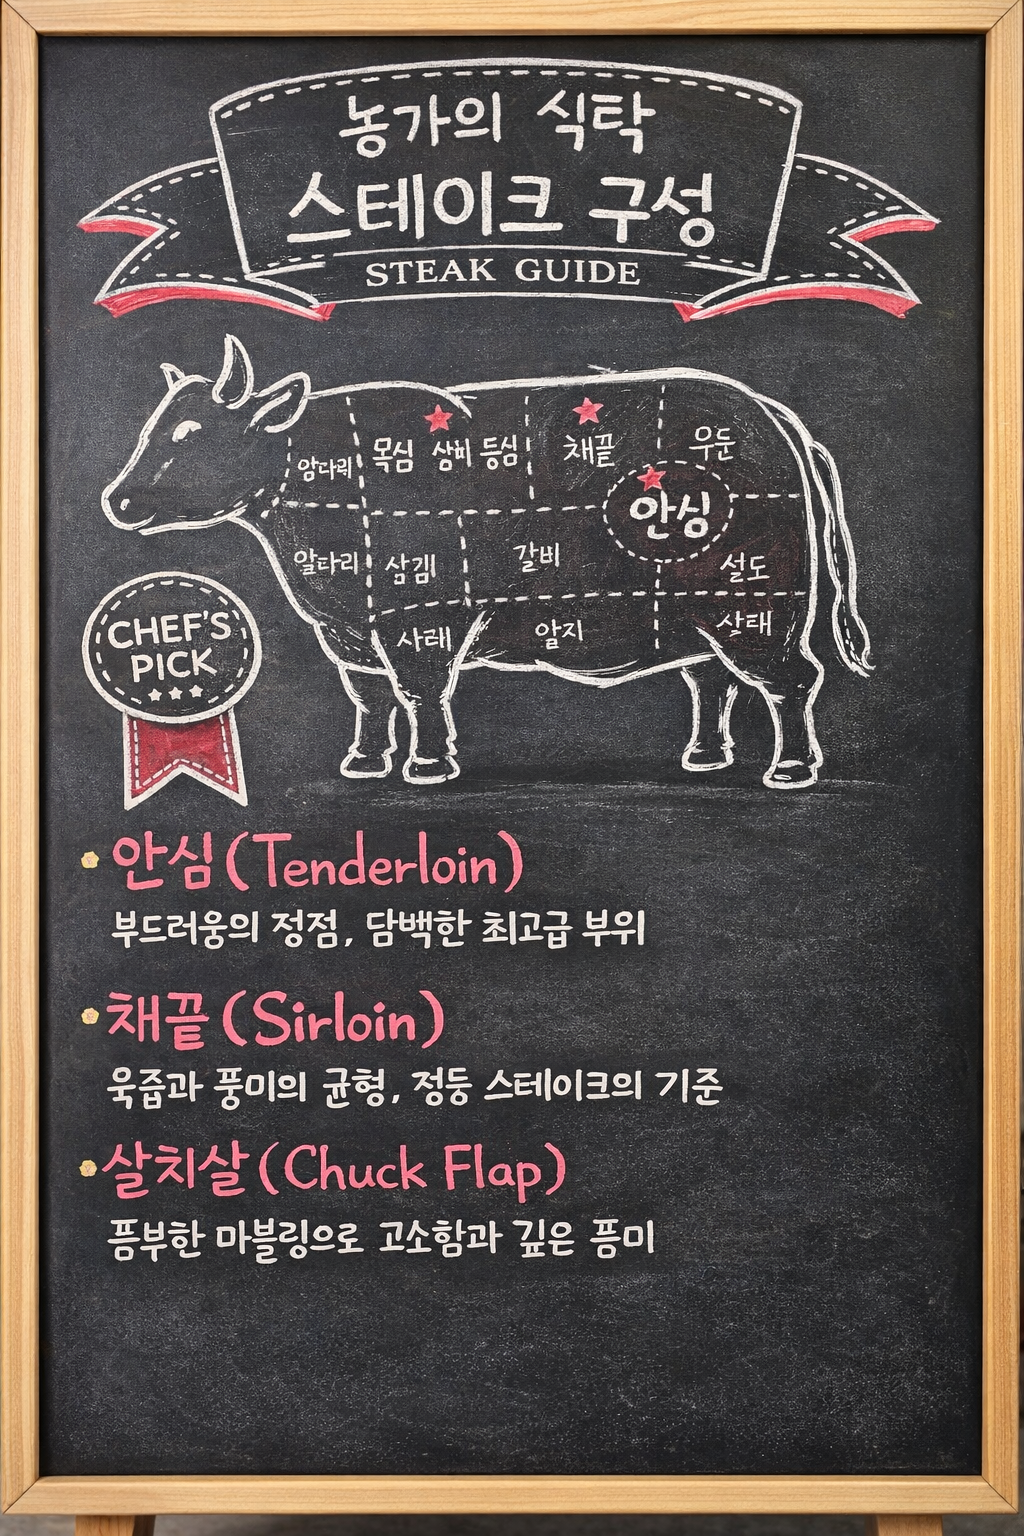 농가의 식탁
스테이크 구성
STEAK GUIDE
목심 등심 채끝 우둔
안심
갈비 설도
사래 알지 상태
CHEF'S
PICK
안심(Tenderloin)
부드러움의 정점, 담백한 최고급 부위
채끝(Sirloin)
육즙과 풍미의 균형, 정둥 스테이크의 기준
살치살(Chuck Flap)
픔부한 마블링으로 고소함과 깊은 픔미